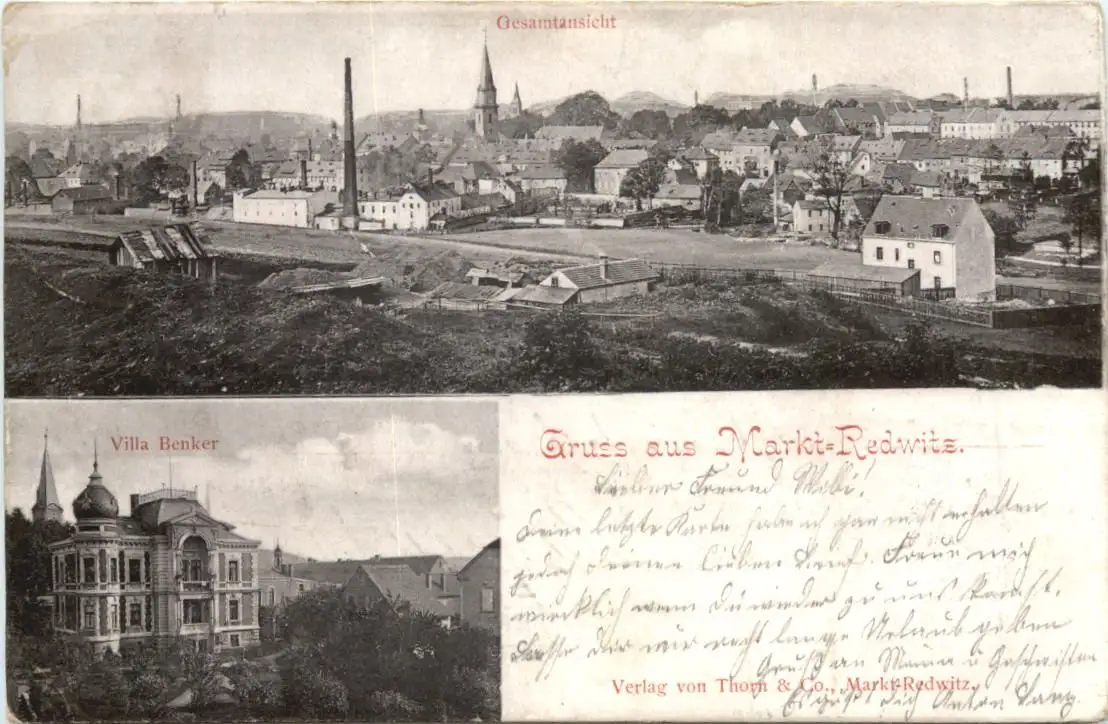 Gesamtansicht
Villa Benker
Gruss aus Markt-Redwitz.
Lieber Freund
Deine letzte Karte habe ich gar nicht erhalten
jedoch deinen lieben Brief. Freue mich
wirklich wenn Du wieder zu uns kommst.
Lasse Dir nur recht lange Urlaub geben
Gruß an Mama u Geschwister
Verlag von Thorn & Co., Markt-Redwitz.
Es grüßt Dich Anton